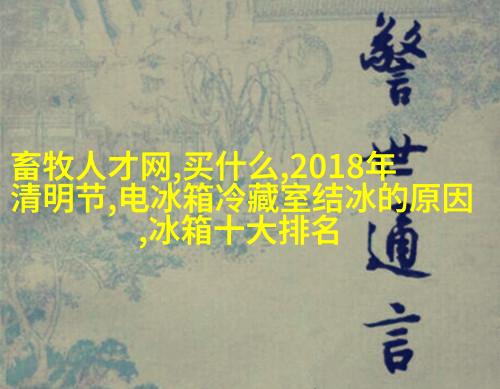 畜牧人才网,买什么,2018年
清明节,电冰箱冷藏室结冰的原因
,冰箱十大排名
警世通言